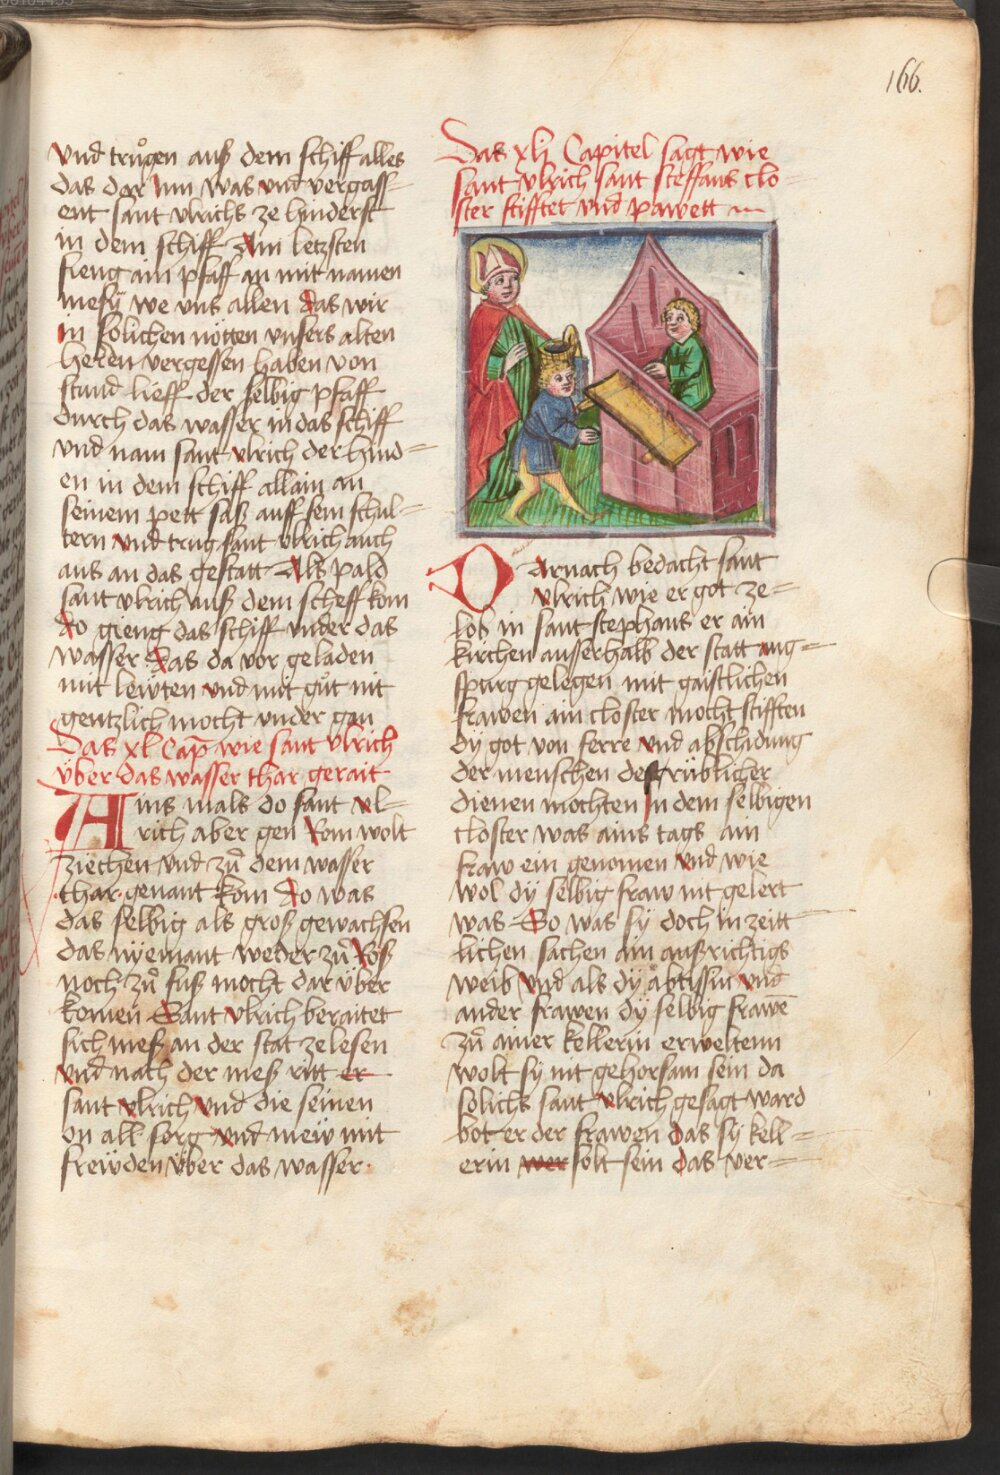 166.
und truͦgen auß dem schiff alles
das der Inn was und vergass-
ent sant ulrichs ze hinderst
in dem schiff Am letzsten
fieng ain pfaff an mit namen
mesÿ we uns allen das wir
in solichen nötten unsers alten
heren vergessen haben von
stund lieff der selbig pfaff
durch das wasser in das schiff
und nam sant ulrich der hind=
en in dem schiff allain an
seinem pett saß auff sein schul=
tern und trug sant ulrich auch
aus an das gestatt Als pald
sant ulrich auß dem scheff kom
do gieng das schiff under das
wasser das da vor geladen
mit lewten und mit guͦt nit
gentzlich mocht under gan
Das xl Cap̄ wie sant ulrich
über das wasser thar gerait
Ains mals do sant ul-
rich aber gen Rom wolt
ziechen und zuͦ dem wasser
·thar· genant kom do was
das selbig als groß gewachsen
das nÿemant weder zuͦ Roß
noch zuͦ fuß mocht dar über
komen Sant ulrich beraitet
sich meß an der stat ze lesen
und nach der meß ritt er
sant ulrich und die seinen
on all sorg und mew mit
frewden über das wasser·
Das xlj Capitel sagt wie
sant ulrich sant steffans clo=
ster stifftet und pawett
Darnach bedacht sant
ulrich wie er got ze=
lob in sant stephans er ain
kirchen ausserhalb der statt aug=
spurg gelegen mit gaistlichen
frawen ain closter mocht stifften
dÿ got von ferre und abschidung
der menschen des rüblicher
dienen mochten In dem selbigen
closter was ains tags ain
fraw ein genomen und wie
wol dÿ selbig fraw nit gelert
was So was sÿ doch in zeitt
lichen sachen ain außrichtigs
weib Und als dÿ äbtissin und
ander frawen dÿ selbig frawē
zuͦ ainer kellerin erweltenn
wolt sÿ nit gehorsam sein da
solichs sant ulrich gesagt ward
bot er der frawen das sÿ kell=
erin wer solt sein das ver=